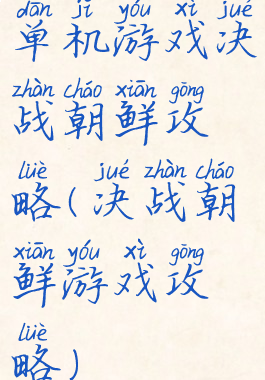 dān jī yóu xì jué
单机游戏决
zhàn cháo xiān gōng
战朝鲜攻
lüè jué zhàn cháo
略(决战朝
xiān yóu xì gōng
鲜游戏攻
lüè
略)